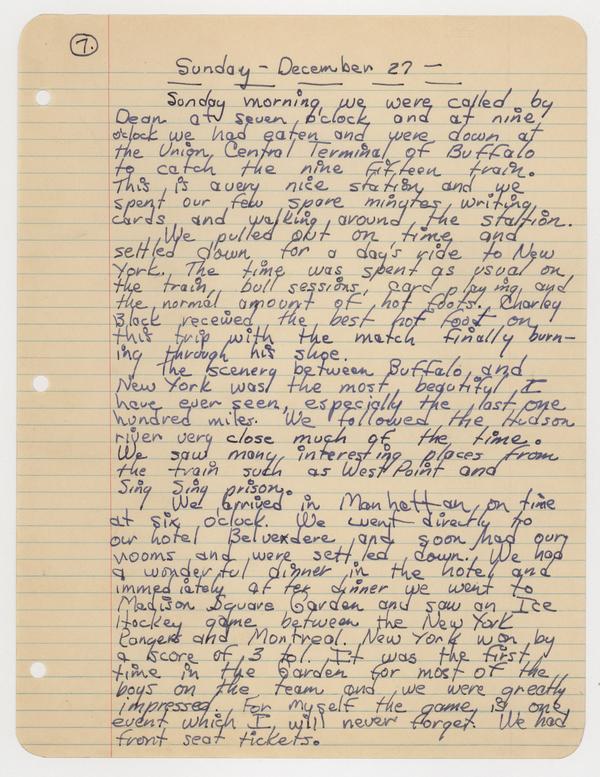 7.
Sunday - December 27 -
Sunday morning we were called by
Dean at seven o'clock and at nine
o'clock we had eaten and were down at
the Union Central Terminal of Buffalo
to catch the nine fifteen train.
This is a very nice station and we
spent our few spare minutes writing
cards and walking around the station.
We pulled out on time and
settled down for a day's ride to New
York. The time was spent as usual on
the train, bull sessions, card playing, and
the normal amount of hot foots. Charley
Black received the best hot foot on
this trip with the match finally burn-
ing through his shoe.
The scenery between Buffalo and
New York was the most beautiful I
have ever seen, especially the last one
hundred miles. We followed the Hudson
river very close much of the time.
We saw many interesting places from
the train such as West Point and
Sing Sing prison.
We arrived in Manhattan on time
at six o'clock. We went directly to
our hotel Belvedere and soon had our
rooms and were settled down. We had
a wonderful dinner in the hotel and
immediately after dinner we went to
Madison Square Garden and saw an Ice
Hockey game between the New York
Rangers and Montreal. New York won by
a score of 3 to 1. It was the first
time in the Garden for most of the
boys on the team and we were greatly
impressed. For myself the game is one
event which I will never forget. We had
front seat tickets.